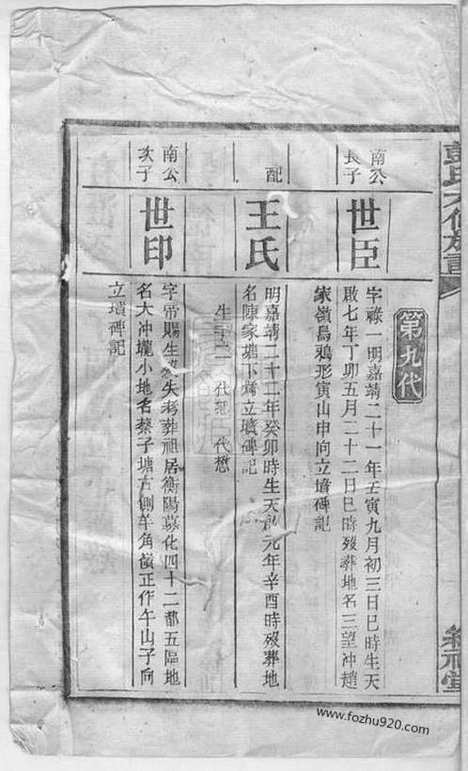 彭氏六修族譜
第九代
南公長子
世臣
字祿一明嘉靖二十一年壬寅九月初三日巳時生天
啟七年丁卯五月二十二日巳時歿葬地名三望冲趙
家嶺烏鴉形寅山申向立墳碑記
配
王氏
明嘉靖二十二年癸卯時生天啟元年辛酉時歿葬地
名陳家塘下灣立墳碑記
生子二 代 代懋
南公次子
世印
字帝賜生歿失考葬祖居衡陽慕化四十二都五區地
名大冲壠小地名蔡子塘右側羊角嶺正作午山子向
立墳碑記
堂
www.fozhu920.com